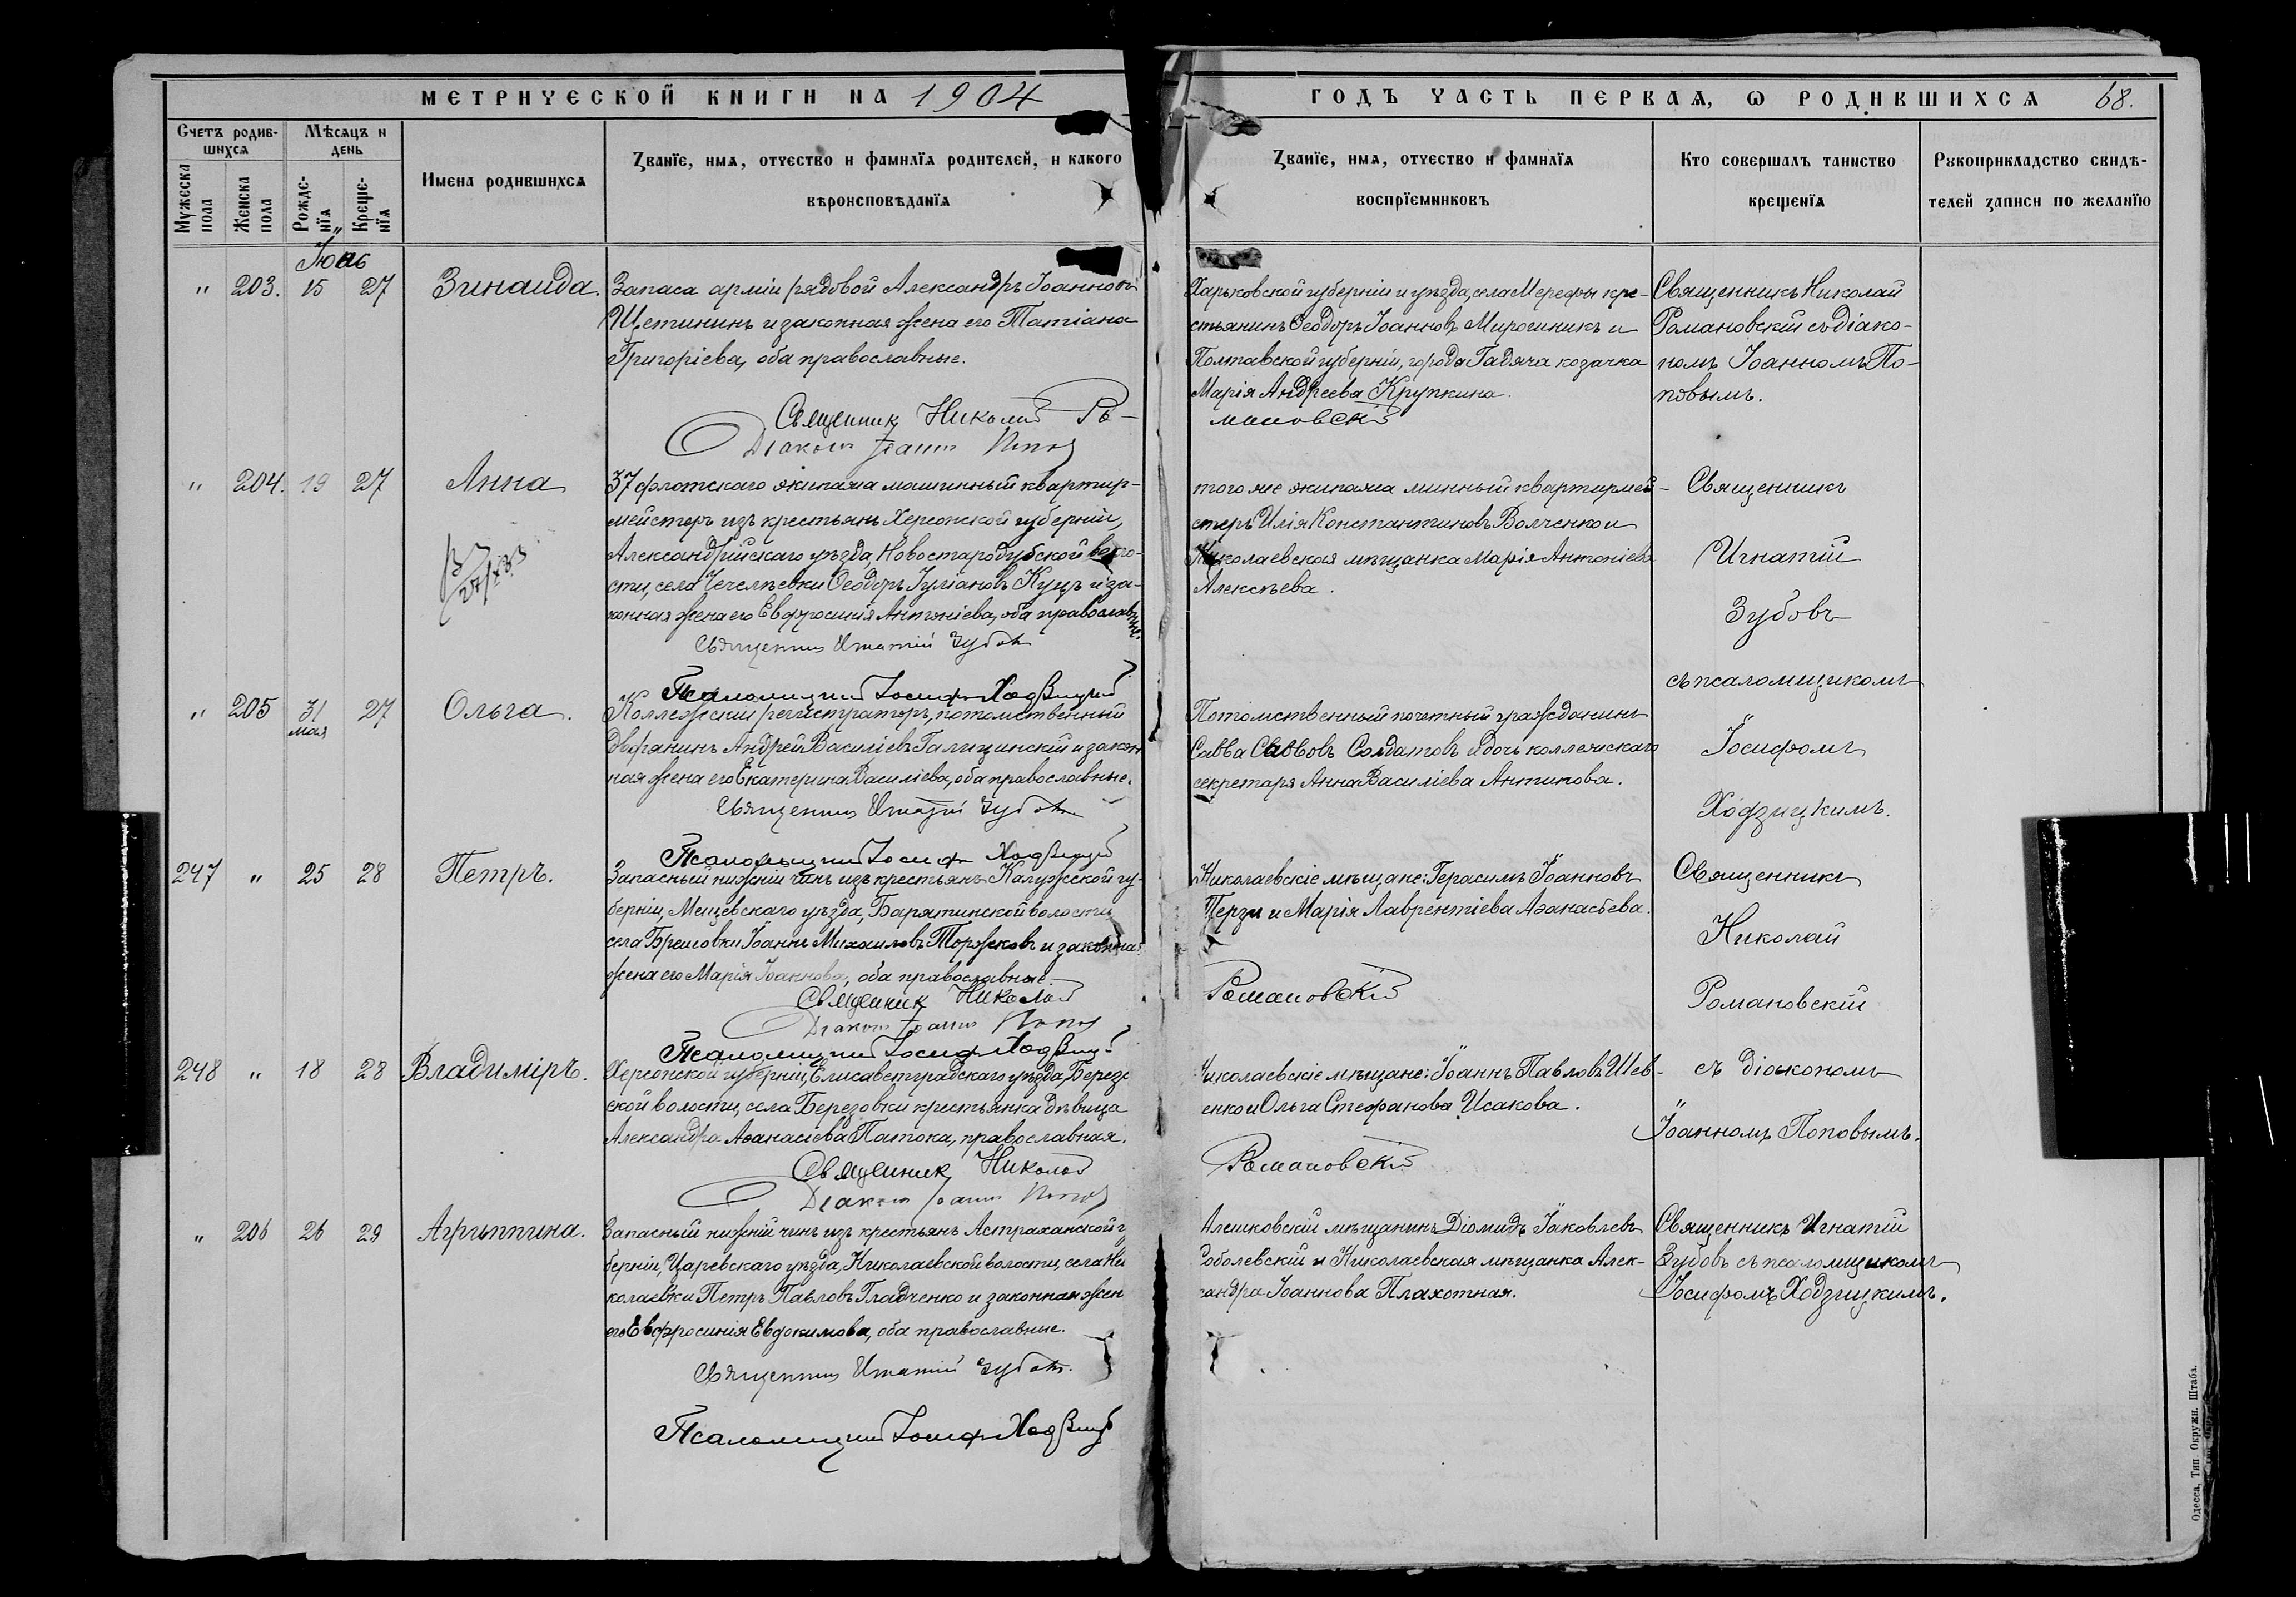 МЕТРИЧЕСКОЙ КНИГИ НА 1904
ГОДЪ ЧАСТЬ ПЕРВАѦ, Ѡ РОДИВШИХСѦ 68.
Счетъ родив-
шихсѧ
Мѣсѧцъ и
день
Мужеска
пола
Женска
пола
Рожде-
нїѧ
Креще-
нїѧ
Имена родившихсѧ
Званїе, имѧ, отчество и фамилїѧ родителей, и какого
вѣроисповѣданїѧ
Званїе, имѧ, отчество и фамилїѧ
воспрїемниковъ
Кто совершалъ таинство
крещенїѧ
Рукоприкладство свидѣ-
телей записи по желанїю
Іюнь
" 203. 15 27 Зинаида.
Запаса арміи рядовой Александръ Іоанновъ
Щетининъ и законная жена его Татіана
Григоріева, оба православные.
Священникъ Николай Ро-
мановскій
Діаконъ Іоаннъ Попов
Харьковской губерніи и уѣзда, села Мерефы кре-
стьянинъ Ѳеодоръ Іоанновъ Мирошникъ и
Полтавской губерніи, города Гадяча козачка
Марія Андреева Крупкина.
Священникъ Николай
Романовскій съ діако-
номъ Іоанномъ По-
повымъ.
" 204. 19 27 Анна
37 флотскаго экипажа машинный квартир-
мейстеръ изъ крестьянъ Херсонской губерніи,
Александрійскаго уѣзда, Новостародубской воло-
сти, села Чечелѣевки Ѳеодоръ Іуліановъ Куцъ и за-
конная жена его Евфросинія Антоніева, оба православные.
Священникъ Игнатій Зубовъ
Псаломщикъ Іосифъ Ходзицкій
того же экипажа минный квартирмей-
стеръ Илія Константиновъ Волченко и
Николаевская мѣщанка Марія Антоніева
Алексѣева.
Священникъ
Игнатій
Зубовъ
съ псаломщикомъ
Іосифомъ
Ходзицкимъ.
" 205 31 мая 27 Ольга.
Коллежскій регистраторъ, потомственный
Дворянинъ Андрей Василіевъ Галицинскій и закон
ная жена его Екатерина Василіева, оба православные.
Священникъ Игнатій Зубовъ
Псаломщикъ Іосифъ Ходзицкій
Потомственный почетный гражданинъ
Савва Саввовъ Солдатовъ и дочь коллежскаго
секретаря Анна Василіева Антипова.
247 " 25 28 Петръ.
Запасный нижній чинъ изъ крестьянъ Калужской гу-
берніи, Мещевскаго уѣзда, Барятинской волости
села Бреловки Іоаннъ Михаиловъ Торжковъ и законная
жена его Марія Іоаннова, оба православные.
Священникъ Николай
Романовскій
Діаконъ Іоаннъ Попов
Псаломщикъ Іосифъ Ходзицкій
Николаевскіе мѣщане: Герасимъ Іоанновъ
Перзи и Марія Лаврентіева Аѳанасьева.
Священникъ
Николай
Романовскій
съ діакономъ
Іоанномъ Поповымъ.
248 " 18 28 Владиміръ.
Херсонской губерніи, Елисаветградскаго уѣзда, Березо
ской волости, села Березовки крестьянка дѣвица
Александра Аѳанасіева Патока, православная.
Священникъ Николай
Романовскій
Діаконъ Іоаннъ Попов
Николаевскіе мѣщане: Іоаннъ Павловъ Шев-
енко и Ольга Стефанова Исакова.
" 206 26 29 Агриппина.
Запасный нижній чинъ изъ крестьянъ Астраханской г
берніи, Царевскаго уѣзда, Николаевской волости, села Ни
колаевки Петръ Павловъ Гладченко и законная жен
его Евфросинія Евдокимова, оба православные.
Священникъ Игнатій Зубовъ.
Псаломщикъ Іосифъ Ходзицкій
Алешковскій мѣщанинъ Діомидъ Іаковлевъ
Соболевскій и Николаевская мѣщанка Алек-
сандра Іоаннова Плахотная.
Священникъ Игнатій
Зубовъ съ псаломщикомъ
Іосифомъ Ходзицкимъ.
Одесса, Тип. Окружн. Штаба.